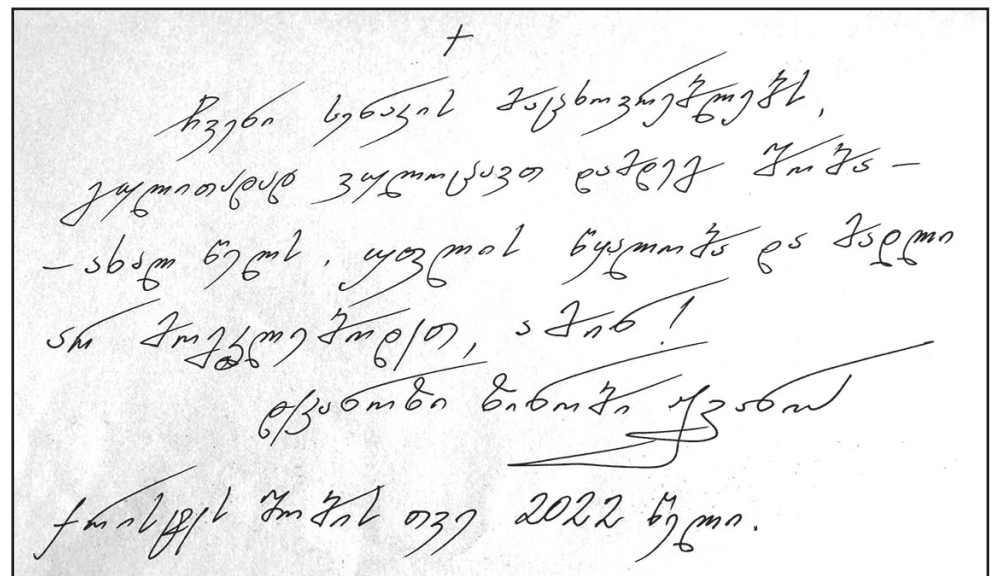 +
ჩვენი სენაკის მაცხოვრებლებს,
გულითადად ვულოცავთ დამდეგ შობა –
– ახალ წელს. უფლის წყალობა და მადლი
არ მოგკლებოდეთ, ამინ!
დეკანოზი
ქრისტეს შობის თვე 2022 წელი.